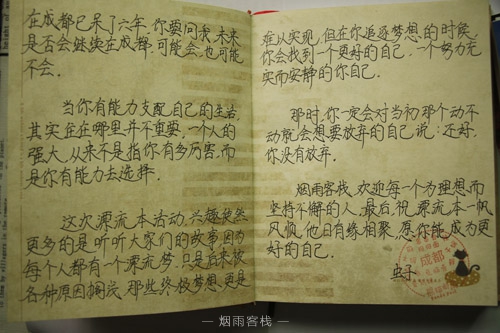 在成都已呆了六年,你要问我,未来
是否会继续在成都,可能会,也可能
不会。
当你有能力支配自己的生活,
其实在在哪里并不重要,一个人的
强大,从来不是指你有多厉害,而
是你有能力去选择。
这次漂流本活动,兴趣使然
更多的是听听大家们的故事,因为
每个人都有一个漂流梦,只是后来被
各种原因搁浅,那些终极梦想,更是
难以实现,但在你追逐梦想的时候,
你会找到一个更好的自己,一个努力充
实而安静的你自己。
那时,你一定会对当初那个动不
动就会想要放弃的自己说:还好,
你没有放弃。
烟雨客栈,欢迎每一个为理想而
坚持不懈的人,最后,祝漂流本一帆
风顺,他日有缘相聚,愿你能成为更
好的自己。
成都
— 烟雨客栈 —